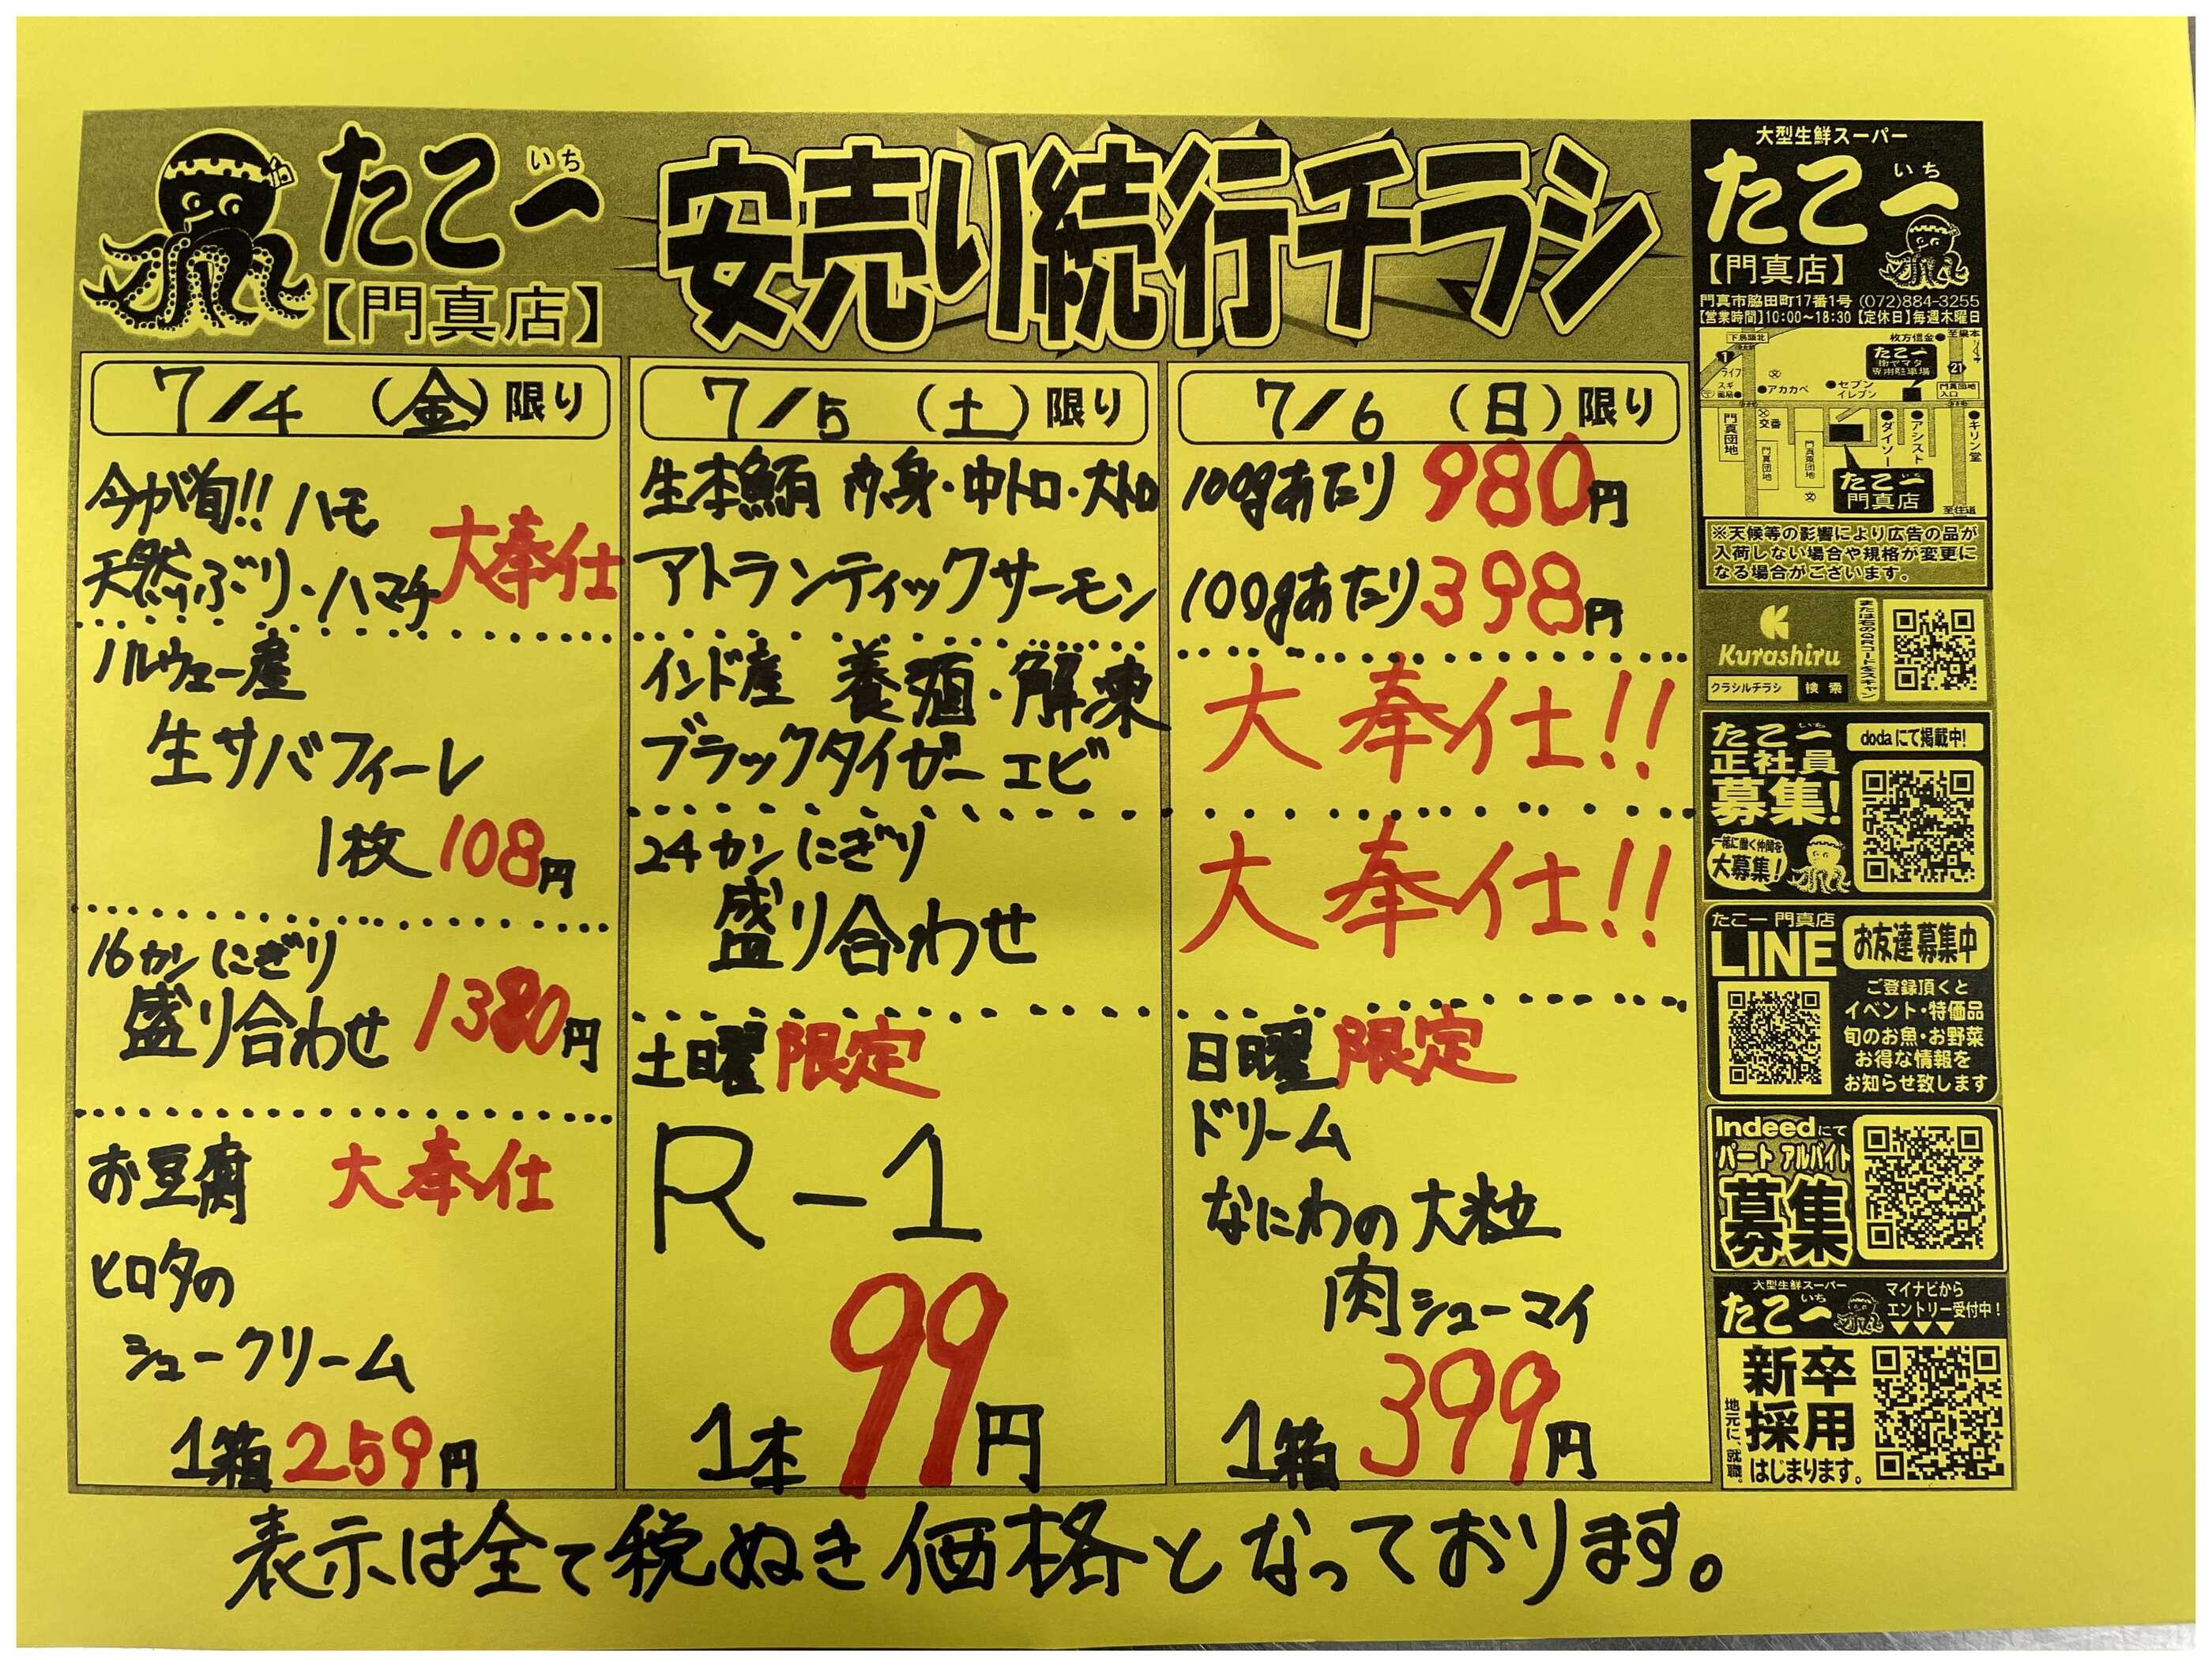 たこ一
いち
【門真店】
安売り続行チラシ
7/4 (金)限り
今が旬!! ハモ
天然ぶり・ハマチ 大奉仕
ノルウェー産
生サバフィーレ
1枚 108円
16カンにぎり
盛り合わせ 1380円
お豆腐 大奉仕
ヒロタの
シュークリーム
1箱 259円
7/5 (土)限り
7/6 (日)限り
生本鮪 赤身・中トロ・大トロ 100gあたり 980円
アトランティックサーモン 100gあたり 398円
インド産 養殖・解凍
ブラックタイガーエビ 大奉仕!!
24カンにぎり
盛り合わせ 大奉仕!!
土曜限定
R-1
1本 99円
日曜限定
ドリーム
なにわの大粒
肉シューマイ
1箱 399円
表示は全て税ぬき価格となっております。
大型生鮮スーパー
たこ一
いち
【門真店】
門真市脇田町17番1号 (072)884-3255
【営業時間】10:00〜18:30【定休日】毎週木曜日
枚方信金
たこ一
専用駐車場
1
ライフ
21
スギ
薬局
アカカベ
セブン
イレブン
門真団地
入口
門真団地
交番
ダイソー
アシスト
キリン堂
たこ一
門真店
至住道
※天候等の影響により広告の品が
入荷しない場合や規格が変更に
なる場合がございます。
Kurashiru
クラシルチラシ 検索
または右のQRコードをスキャン
たこ一
いち
正社員
募集!
dodaにて掲載中!
一緒に働く仲間を
大募集!
たこ一 門真店
LINE
お友達募集中
ご登録頂くと
イベント・特価品
旬のお魚・お野菜
お得な情報を
お知らせ致します
Indeedにて
パート アルバイト
募集
大型生鮮スーパー
たこ一
いち
マイナビから
エントリー受付中!
▼▼▼
新卒
採用
はじまります。
地元に、就職。